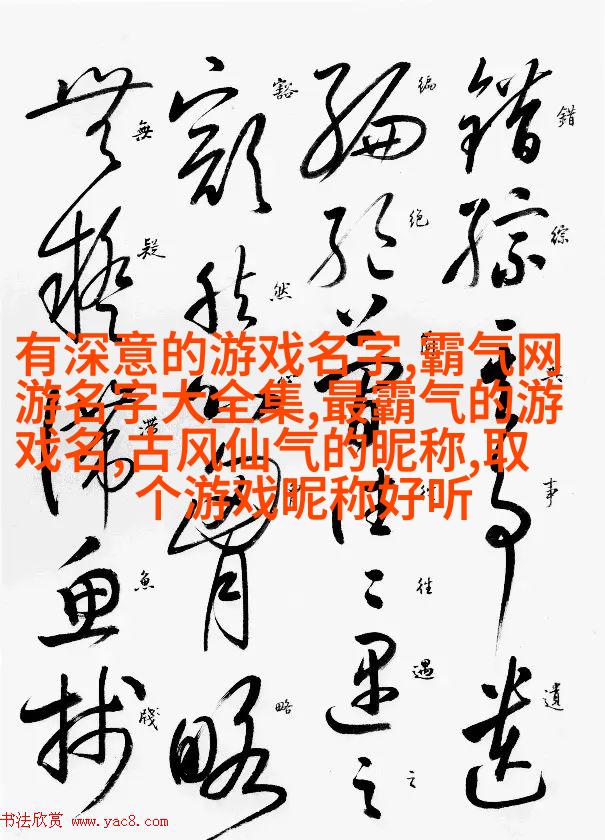 有深意的游戏名字,霸气网
游名字大全集,最霸气的游
戏名,古风仙气的昵称,取
个游戏昵称好听
錯綜其事遺
编绝簡往往遇之
豁然心胸略
無疑滯魚牋
书法欣赏 www.yac8.com